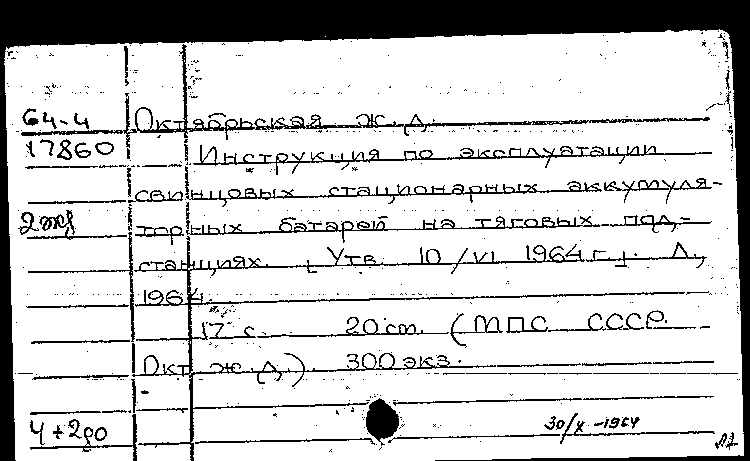 64-4 Октябрьская ж. д.
17860 Инструкция по эксплуатации
свинцовых стационарных аккумуля-
торных батарей на тяговых под-
станциях. [Утв. 10/VI 1964 г.]. Л.,
1964.
17 с. 20 см. (МПС СССР.
Окт. ж. д.). 300 экз.
30/X-1964